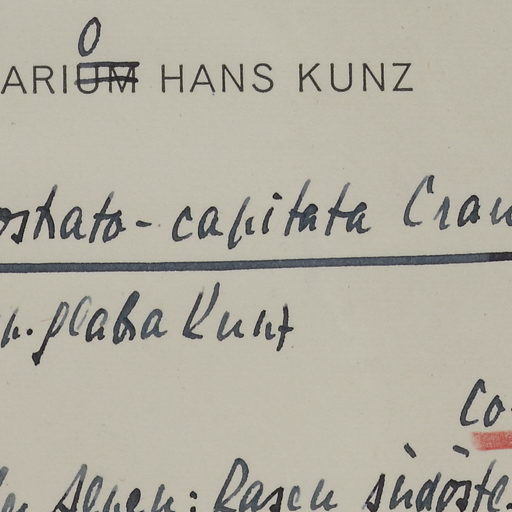 O
ARIUM HANS KUNZ
ostrato-capitata Cran
n. glabra Kunz
Co
er Alpen: Rasen südöstl.